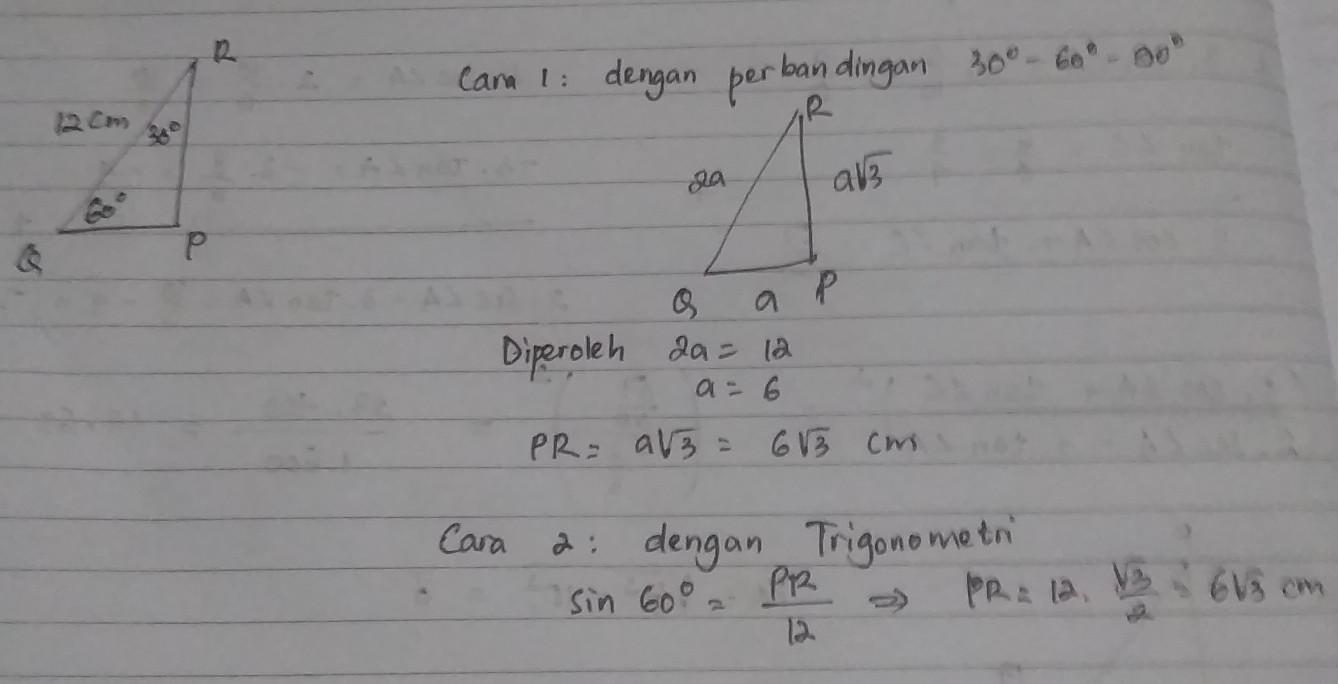 R
Cara 1: dengan perbandingan 30° - 60° - 90°
12 cm
30°
60°
Q
P
R
2a
a√3
Q a P
Diperoleh 2a = 12
a = 6
PR = a√3 = 6√3 cm
Cara 2: dengan Trigonometri
sin 60° = PR/12 ⇒ PR = 12. √3/2 = 6√3 cm